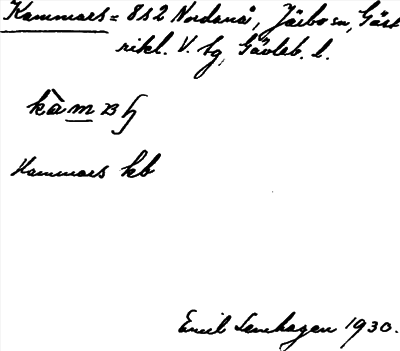 Kammars = 8s2 Nordanå, Järbo sn, Gäst
rikl. V. tg, Gävleb. l.
kàmaʒ
Hammars kb
Emil Lenhagen 1930.